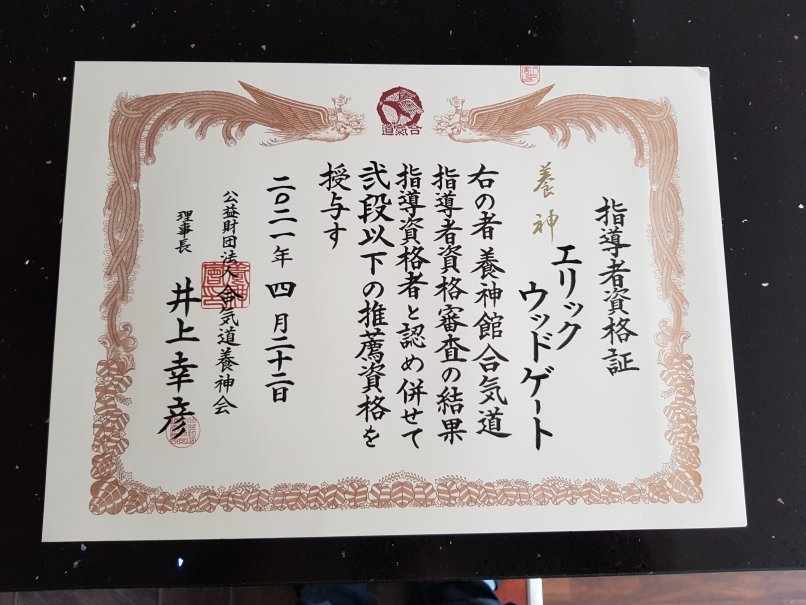 合氣道
指導者資格証
養神
エリック
ウッドゲート
右の者養神館合気道
指導者資格審査の結果
指導資格者と認め併せて
弐段以下の推薦資格を
授与す
二〇二一年四月二十二日
公益財団法人合気道養神会
理事長 井上幸彦